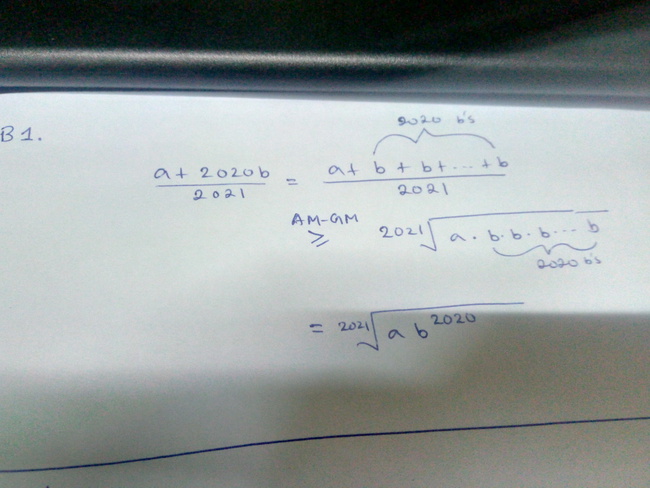 B1.
2020 b's
a + 2020b / 2021 = a + b + b + ... + b / 2021
AM-GM
≥ 2021√ a · b · b · b ... b
2020 b's
= 2021√ a b^2020